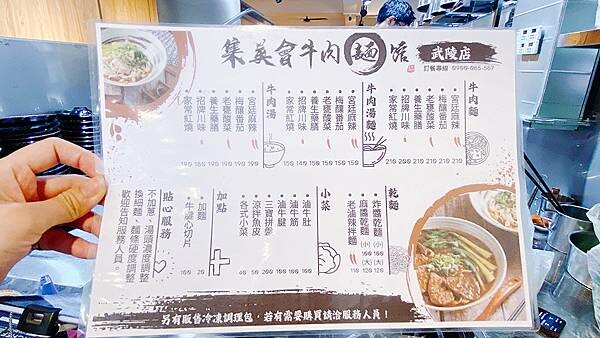 集英會牛肉麵館
武陵店
訂餐專線 0900-065-567
牛肉麵
宮廷麻辣 210
梅釀番茄 210
老甕酸菜 210
養生藥膳
招牌川味 200
家常紅燒 210
牛肉湯麵
宮廷麻辣 150
梅釀番茄 150
老甕酸菜 150
養生藥膳 150
招牌川味 140
家常紅燒 150
牛肉湯
宮廷麻辣 190
梅釀番茄 190
老甕酸菜 190
養生藥膳 190
招牌川味 180
家常紅燒 190
乾麵
炸醬乾麵 (小)100 (大)120
麻醬乾麵 (小)100 (大)120
老滷辣拌麵 110
小菜
滷牛肚
滷牛筋
滷牛腱
三寶拼盤
涼拌魚皮
各式小菜
加點
加麵 20
牛腱心切片 100
貼心服務
不加蔥、湯頭濃度調整
換細麵、麵條硬度調整
歡迎告知服務人員。
另有販售冷凍調理包，若有需要購買請洽服務人員！